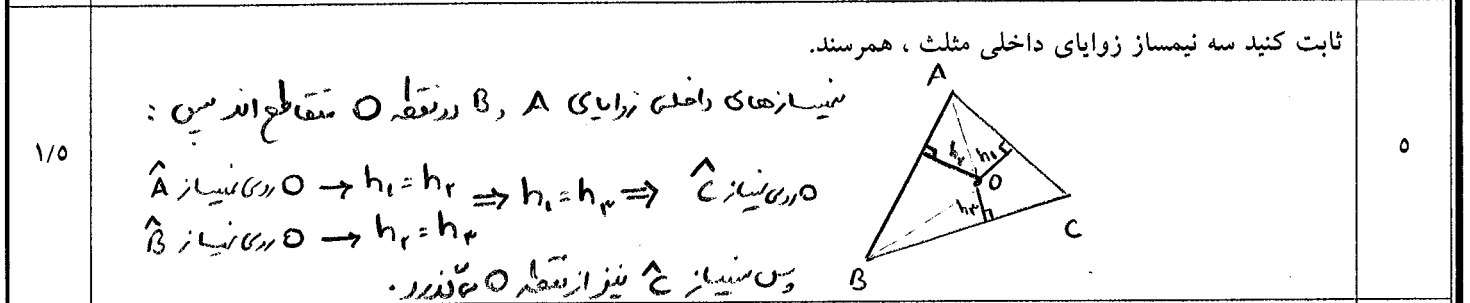 ۵
ثابت کنید سه نیمساز زوایای داخلی مثلث ، همرسند.
نیمسازهای داخلی زوایای A و B در نقطه O متقاطع اند پس :
O روی نیمساز Â → h₁ = h₂ ⇒ h₁ = h₃ ⇒ O روی نیمساز Ĉ
O روی نیمساز B̂ → h₂ = h₃
پس نیمساز Ĉ نیز از نقطه O می‌گذرد.
A
h₂ h₁
O
h₃
C
B
۱/۵